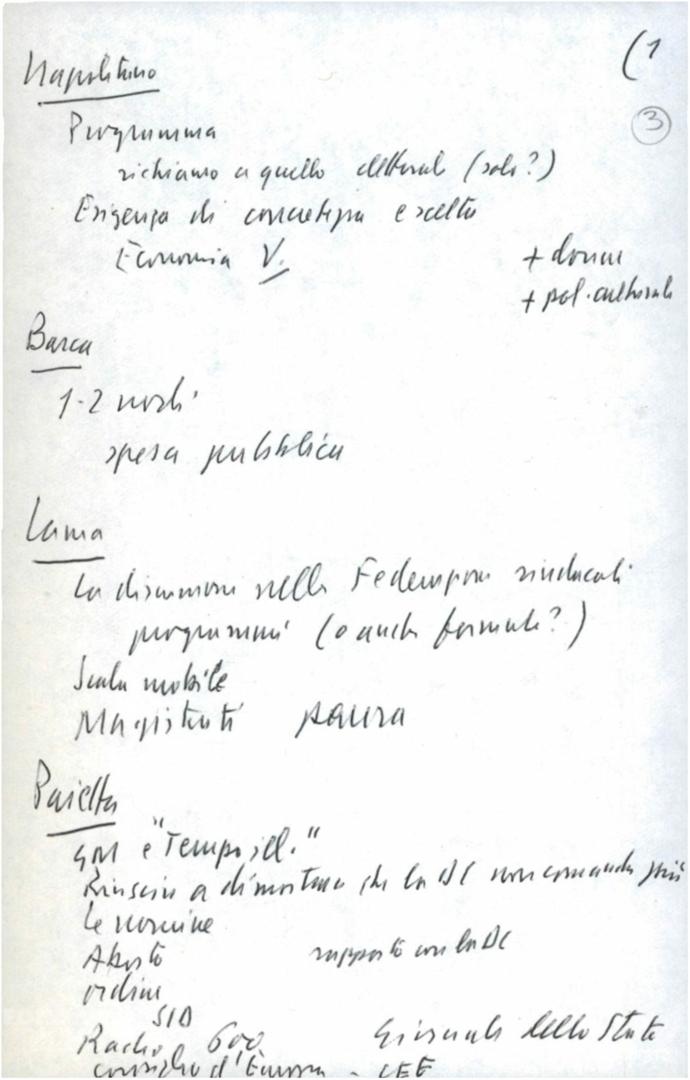 (1
3
Napolitano
Programma
richiamo a quello elettorale (solo?)
Esigenza di concretezza e scelte
Economia V.
+ donne
+ pol. culturale
Barca
1-2 nodi
spesa pubblica
Lama
La discussione nella Federazione sindacale
programmi (o anche formule?)
Scala mobile
Magistrati paura
Pajetta
GM e "Tempo ill."
Riuscire a dimostrare che la DC non comanda più
Le nomine
Aborto rapporto con la DC
ordine
SID
Radio 600 Giornale dello Stato
Consiglio d'Europa - CEE